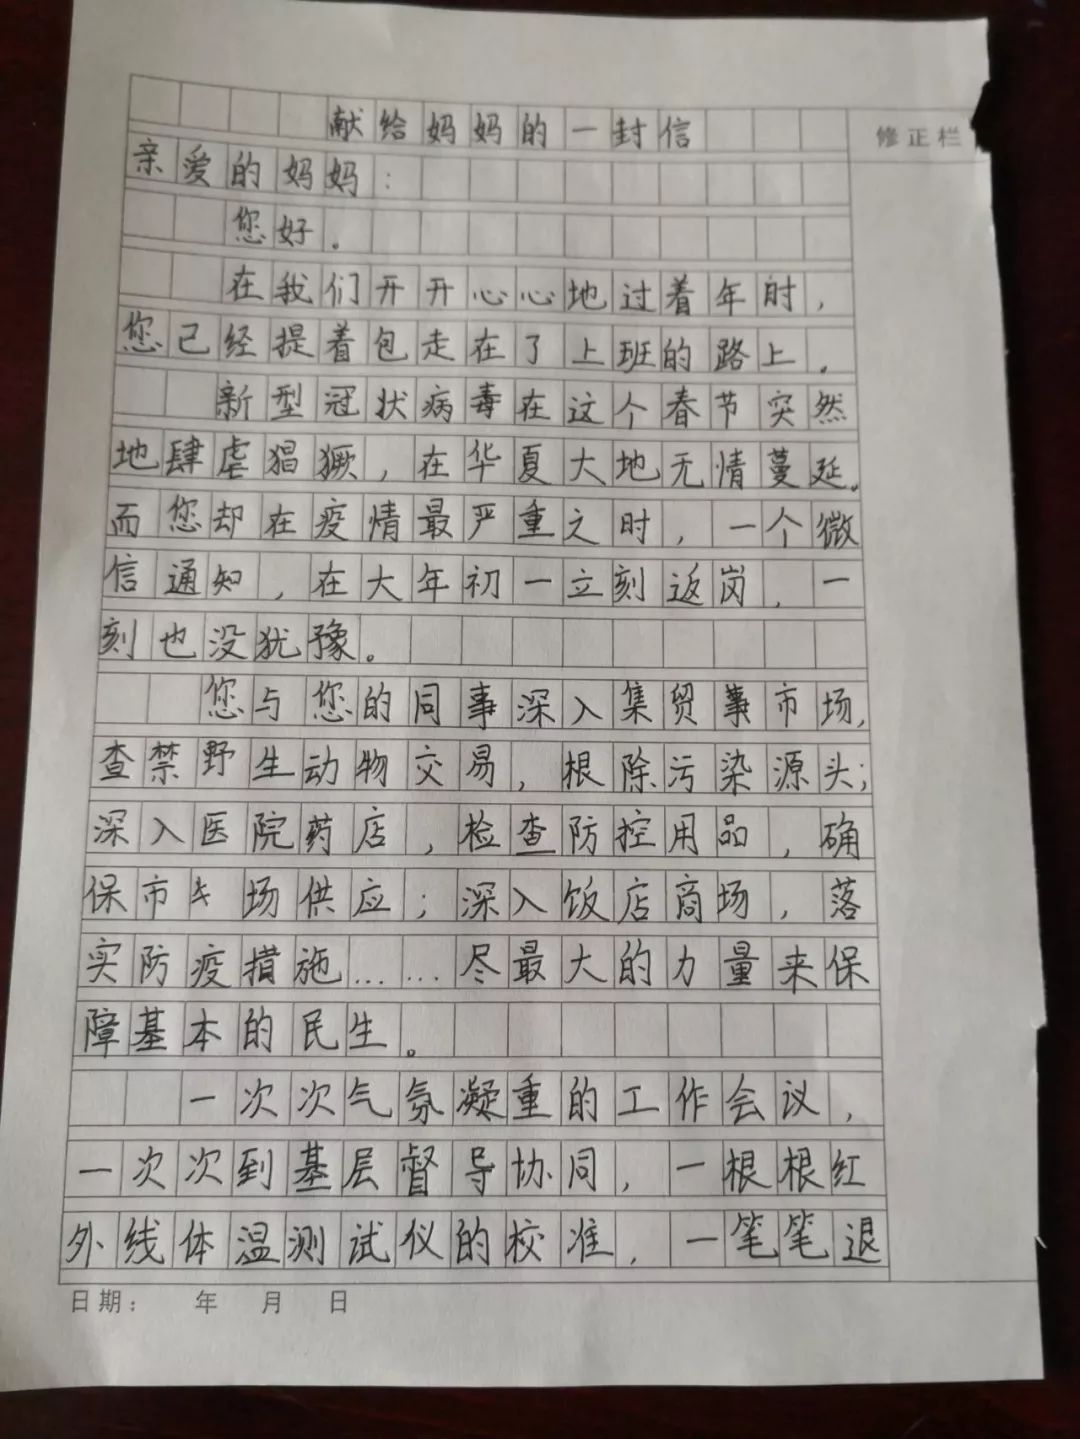 献给妈妈的一封信
修正栏
亲爱的妈妈：
您好。
在我们开开心心地过着年时，
您已经提着包走在了上班的路上。
新型冠状病毒在这个春节突然
地肆虐猖獗，在华夏大地无情蔓延。
而您却在疫情最严重之时，一个微
信通知，在大年初一立刻返岗，一
刻也没犹豫。
您与您的同事深入集贸市场，
查禁野生动物交易，根除污染源头；
深入医院药店，检查防控用品，确
保市场供应；深入饭店商场，落
实防疫措施……尽最大的力量来保
障基本的民生。
一次次气氛凝重的工作会议，
一次次到基层督导协同，一根根红
外线体温测试仪的校准，一笔笔退
日期： 年 月 日